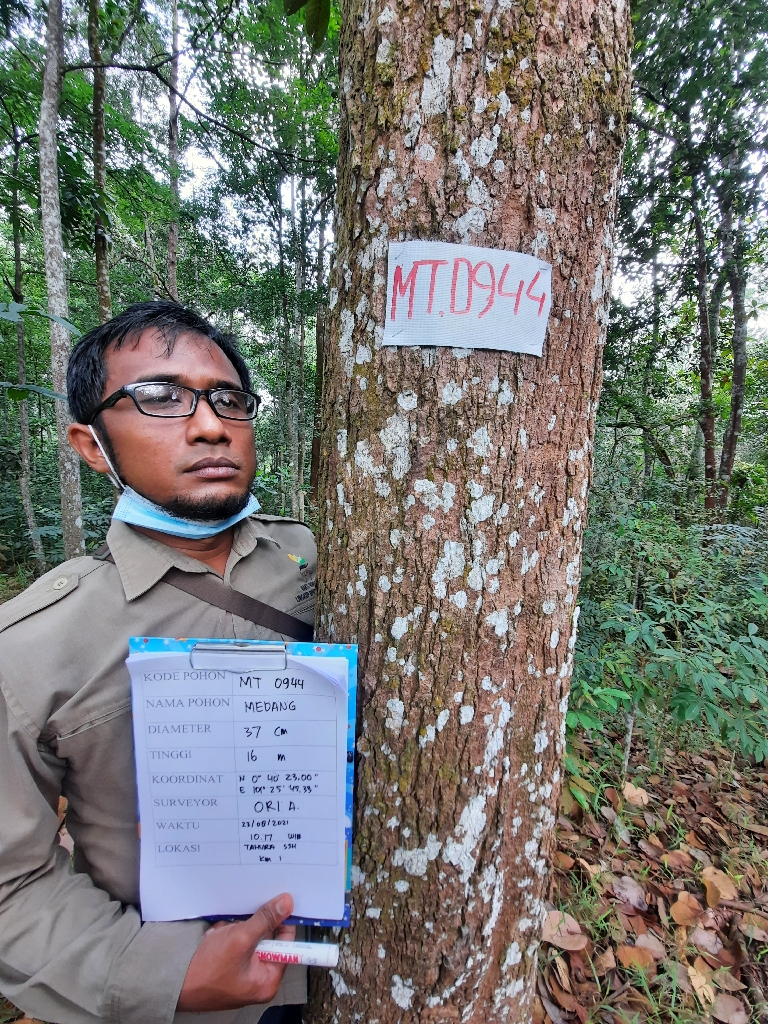 MT.D944
KODE POHON MT 0944
NAMA POHON MEDANG
DIAMETER 37 Cm
TINGGI 16 m
KOORDINAT N 0° 40' 23.00"
E 101° 25' 48.33"
SURVEYOR ORI A.
WAKTU 23/08/2021
10.17 WIB
LOKASI TAHURA SSH
KM 1
SNOWMAN